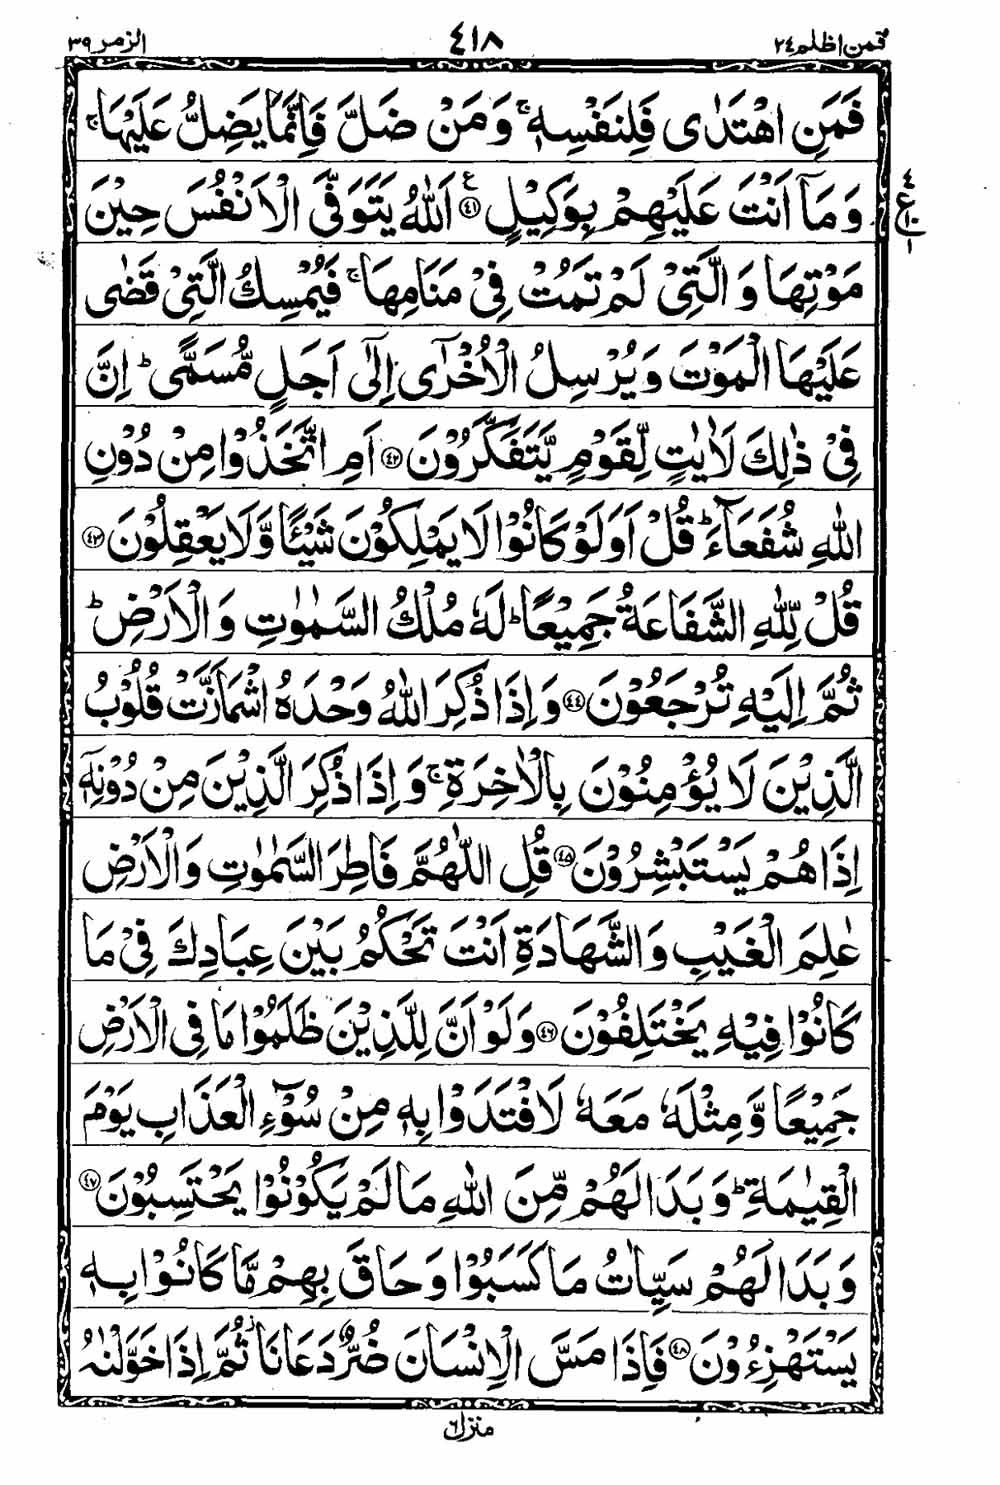 فمن اظلم ۲۴ ۴۱۸ الزمر ۳۹
فَمَنِ اهْتَدٰى فَلِنَفْسِهٖ ۚ وَ مَنْ ضَلَّ فَاِنَّمَا يَضِلُّ عَلَيْهَا ۚ
وَ مَاۤ اَنْتَ عَلَيْهِمْ بِوَكِيْلٍ ﴿۴۱﴾ ع اَللّٰهُ يَتَوَفَّى الْاَنْفُسَ حِيْنَ
مَوْتِهَا وَ الَّتِيْ لَمْ تَمُتْ فِيْ مَنَامِهَا ۚ فَيُمْسِكُ الَّتِيْ قَضٰى
عَلَيْهَا الْمَوْتَ وَ يُرْسِلُ الْاُخْرٰۤى اِلٰۤى اَجَلٍ مُّسَمًّى ؕ اِنَّ
فِيْ ذٰلِكَ لَاٰيٰتٍ لِّقَوْمٍ يَّتَفَكَّرُوْنَ ﴿۴۲﴾ اَمِ اتَّخَذُوْا مِنْ دُوْنِ
اللّٰهِ شُفَعَآءَ ؕ قُلْ اَوَلَوْ كَانُوْا لَا يَمْلِكُوْنَ شَيْـًٔا وَّ لَا يَعْقِلُوْنَ ﴿۴۳﴾
قُلْ لِّلّٰهِ الشَّفَاعَةُ جَمِيْعًا ؕ لَهٗ مُلْكُ السَّمٰوٰتِ وَ الْاَرْضِ ؕ
ثُمَّ اِلَيْهِ تُرْجَعُوْنَ ﴿۴۴﴾ وَ اِذَا ذُكِرَ اللّٰهُ وَحْدَهُ اشْمَاَزَّتْ قُلُوْبُ
الَّذِيْنَ لَا يُؤْمِنُوْنَ بِالْاٰخِرَةِ ۚ وَ اِذَا ذُكِرَ الَّذِيْنَ مِنْ دُوْنِهٖۤ
اِذَا هُمْ يَسْتَبْشِرُوْنَ ﴿۴۵﴾ قُلِ اللّٰهُمَّ فَاطِرَ السَّمٰوٰتِ وَ الْاَرْضِ
عٰلِمَ الْغَيْبِ وَ الشَّهَادَةِ اَنْتَ تَحْكُمُ بَيْنَ عِبَادِكَ فِيْ مَا
كَانُوْا فِيْهِ يَخْتَلِفُوْنَ ﴿۴۶﴾ وَ لَوْ اَنَّ لِلَّذِيْنَ ظَلَمُوْا مَا فِي الْاَرْضِ
جَمِيْعًا وَّ مِثْلَهٗ مَعَهٗ لَافْتَدَوْا بِهٖ مِنْ سُوْٓءِ الْعَذَابِ يَوْمَ
الْقِيٰمَةِ ؕ وَ بَدَا لَهُمْ مِّنَ اللّٰهِ مَا لَمْ يَكُوْنُوْا يَحْتَسِبُوْنَ ﴿۴۷﴾
وَ بَدَا لَهُمْ سَيِّاٰتُ مَا كَسَبُوْا وَ حَاقَ بِهِمْ مَّا كَانُوْا بِهٖ
يَسْتَهْزِءُوْنَ ﴿۴۸﴾ فَاِذَا مَسَّ الْاِنْسَانَ ضُرٌّ دَعَانَا ؗ ثُمَّ اِذَا خَوَّلْنٰهُ
منزل ۶